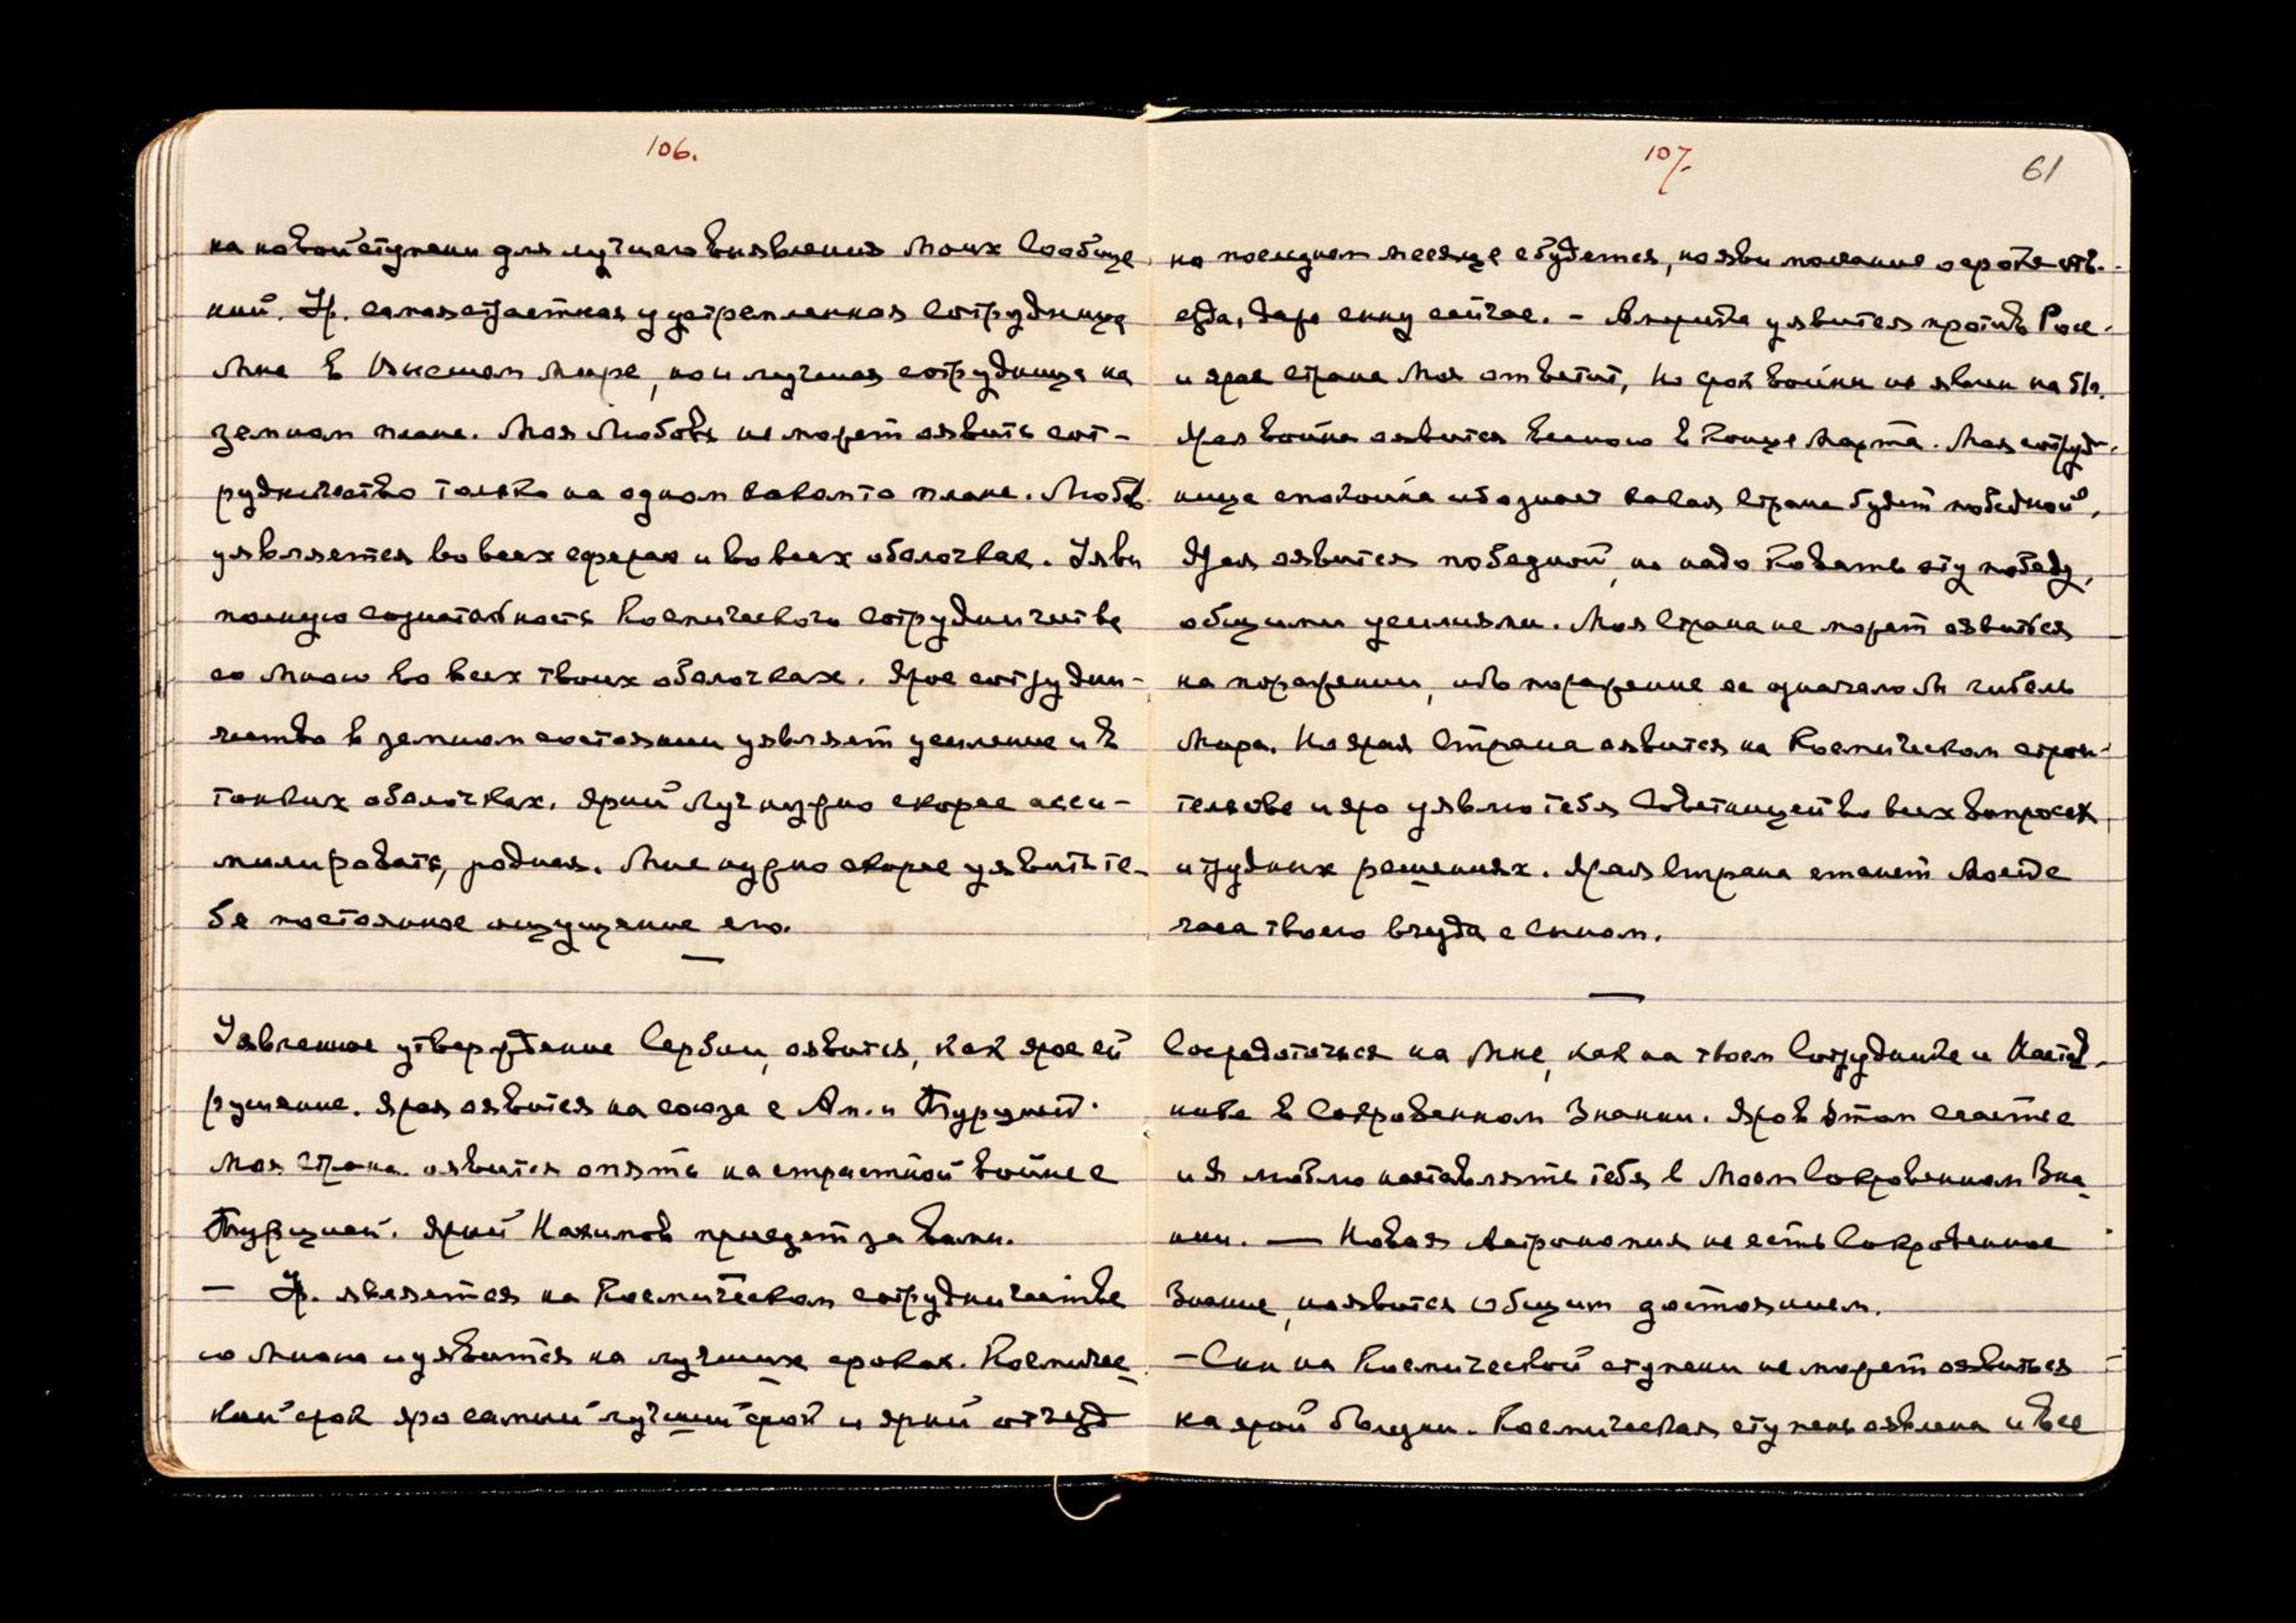 106.
на новой ступени для лучшего выявления Моих Сообще-
ний. Ур. самая страстная и устремленная сотрудница
Мне в Высшем Мире, но и лучшая сотрудница на
земном плане. Моя Любовь не может явить сот-
рудничество только на одном каком-то плане. Любовь
уявляется во всех сферах и во всех оболочках. Уяви
полную сознательность Космического сотрудничества
со Мною во всех твоих оболочках. Ярое сотрудни-
чество в земном состоянии уявляет усиление и в
тонких оболочках. Ярый Луч нужно скорее асси-
милировать, родная. Мне нужно скорее уявить те-
бе постоянное ощущение его.
Уявленное утверждение Сербии, оявится, как ярое ей
рушение. Ярая оявится на союзе с Ам. и Турцией.
Моя Страна оявится опять на страстной войне с
Турцией. Ярый Нахимов приедет за вами.
— Ур. является на Космическом сотрудничестве
со Мною и уявится на лучших сроках. Космичес-
кий срок яро самый лучший срок и ярый отъезд
107.
61
на последнем месяце сбудется, но яви молчание о сроке отъ-
езда, даже сыну сейчас. - Америка уявится против Росс.
и ярая страна Моя ответит, но срок войны не явлен на 51 г.
Ярая война оявится весною в конце Марта. Моя сотруд-
ница спокойна ибо знает какая страна будет победной,
Ярая оявится победной, но надо ковать эту победу,
общими усилиями. Моя Страна не может оявиться
на поражении, ибо поражение ее означало бы гибель
Мира. Но ярая Страна оявится на Космическом строи-
тельстве и яро уявлю тебя Советницей во всех вопросах
и трудных решениях. Ярая Страна станет Моей с
часа твоего въезда с Сыном.
Сосредоточься на Мне, как на твоем Сотруднике и Настав-
нике в Сокровенном Знании. Яро в этом счастье
и Я люблю наставлять тебя в Моем Сокровенном Зна-
нии. — Новая Астрономия не есть Сокровенное
Знание, но явится общим достоянием.
- Сын на Космической ступени не может оявиться
на ярой болезни. Космическая ступень оявлена и все